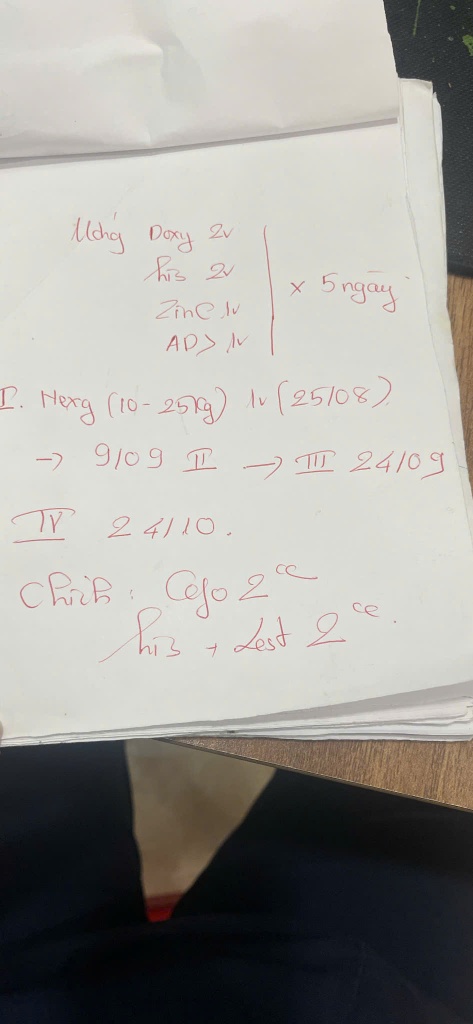 Uống Doxy 2v
his 2v
Zinc 1v
AD> 1v
x 5 ngày
I. Nexg (10-25kg) 1v (25/08)
→ 9/09 II → III 24/09
IV 24/10.
Chích: Cefo 2cc
his + Lest 2cc.